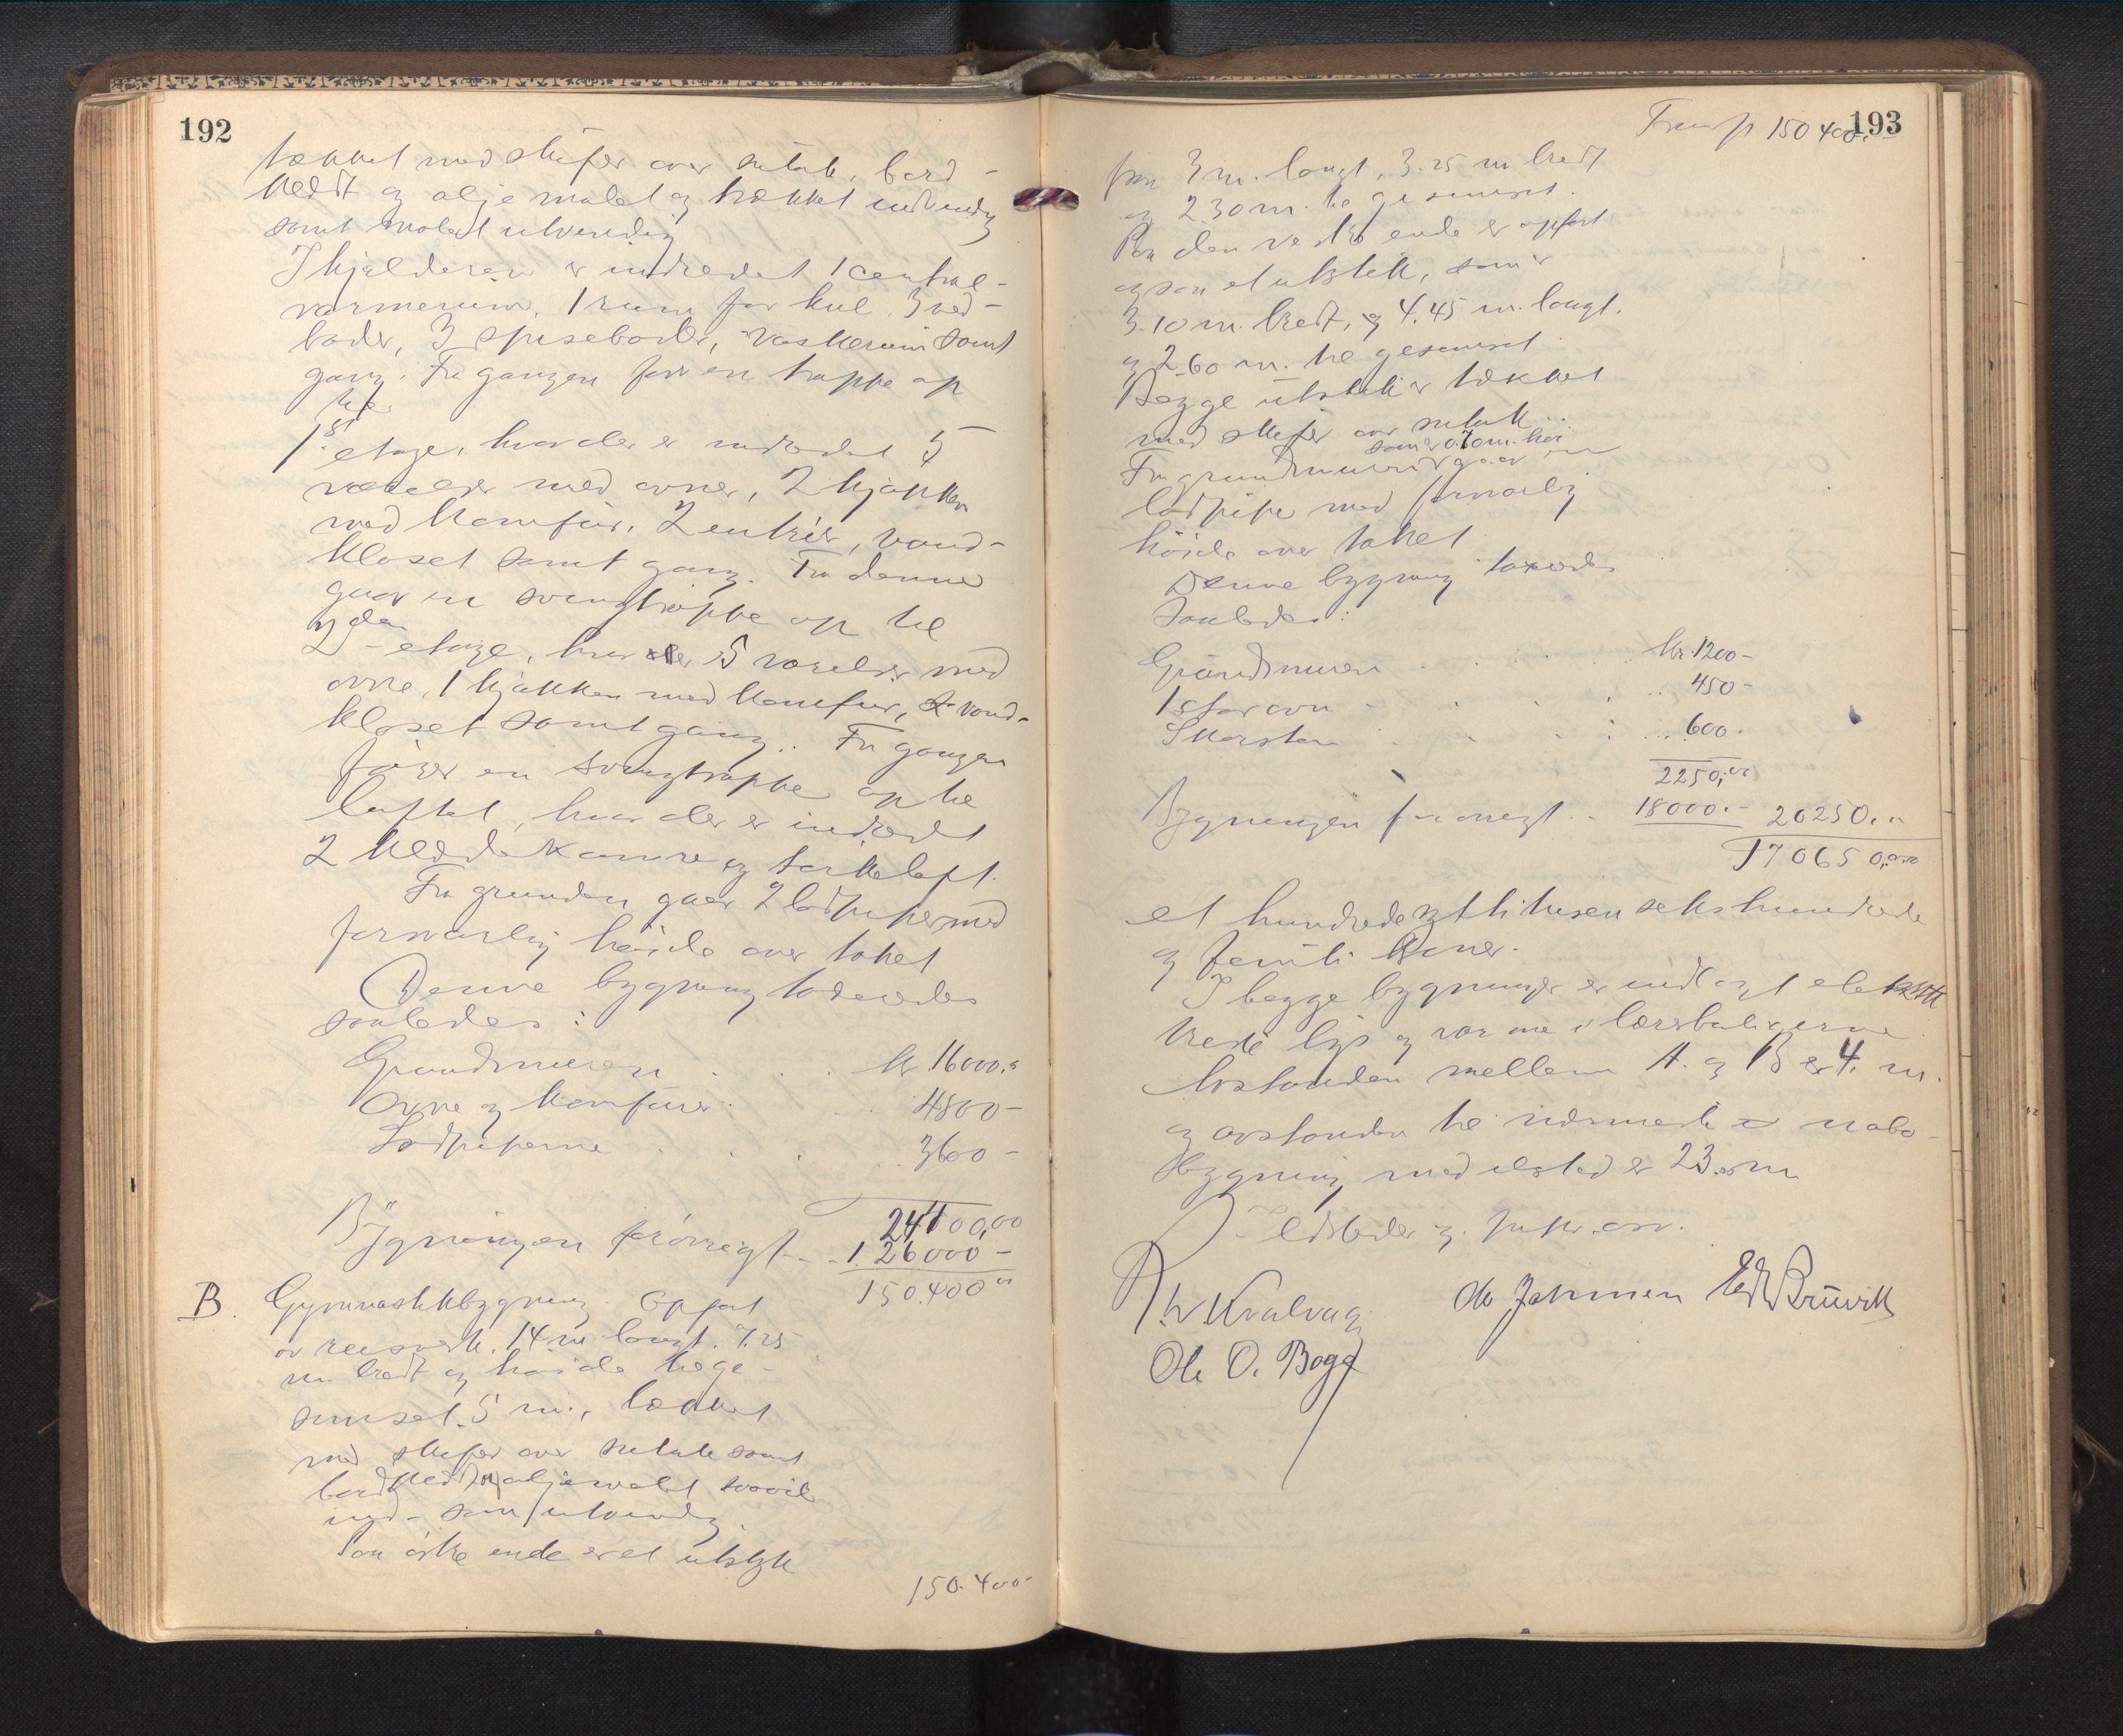 192
tækket med skifer over sutak, bord-
klædt og oljemalet og trækket indvendig
samt malet utvendig
I kjælderen er indredet 1 central-
varmerum, 1 rum for kul, 3 ved-
boder, 3 spiseboder, vaskerum samt
gang. Fra gangen fører en trappe op
til
1ste etage, hvor der er indredet 5
værelser med ovner, 2 kjøkken
med komfur, 2 entréer, vand-
kloset samt gang. Fra denne
gaar en svingtrappe op til
2den etage, hvor der er 5 værelser med
ovne, 1 kjøkken med komfur, vand-
kloset samt gang. Fra gangen
fører en svingtrappe op til
loftet, hvor der er indredet
2 klædekamre og tørkeloft.
Fra grunden gaar 2 lodpiper med
forsvarlig høide over taket
Denne bygning taxeredes
saaledes:
Grundmuren . . . kr 16000.-
Ovne og komfurer . . . 4800-
Lodpiperne . . . 3600-
24400,00
Bygningen forøvrigt . . 126000-
150.400 00
B. Gymnastikbygning. Opført
av reisverk. 14 m. langt. 9.25
m bredt og høide til ge-
simset 5 m., tækket
med skifer over sutak samt
bordklædt og oljemalet saavel
ind- som utvendig.
Paa østre ende er et utstyk
150.400-
193
Transp 150 400.-
paa 3 m. langt, 3.25 m bredt
og 2.30 m. til gesimset.
Paa den vestre ende er opført
ogsaa et utstik, som er
3.10 m. bredt, og 4.45 m. langt.
og 2.60 m. til gesimset
Begge utstik er tækket
med skifer over sutak.
som er 0.70 m. høi
Fra grundmuren gaar en
lodpipe med forsvarlig
høide over taket
Denne bygning taxeredes
saaledes:
Grundmuren . . . kr. 1200-
1 stor ovn . . . 450-
Skorsten . . . 600.
2250,00
Bygningen forøvrigt . . 18000.- 20250.00
170650,00
et hundrede og sytti tusen sekshundrede
og femti kroner.
I begge bygninger er indlagt elek
trisk lys og varme i lærerboligerne
Avstanden mellem A. og B er 4. m.
og avstanden til nærmeste nabo-
bygning med ildsted er 23.00 m
Ildsteder og piper.
Kvalvaag Ole Johnsen Edv Bruvik
Ole O. Boge